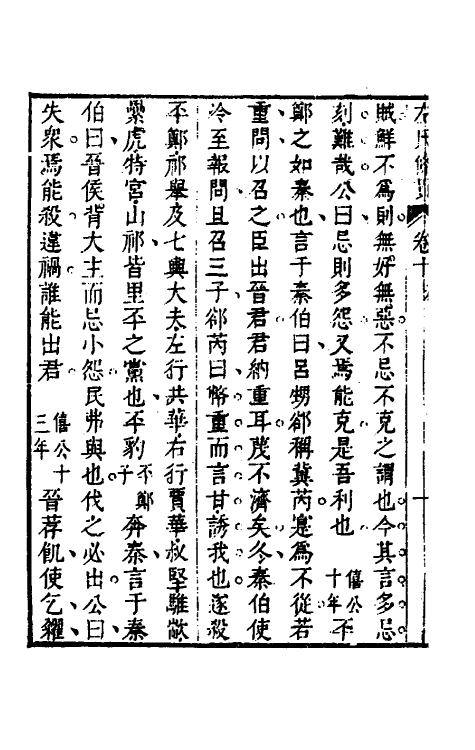 左氏 卷十
賊鮮不爲則無好無惡不忌不克之謂也今其言多忌
刻難哉公曰忌則多怨又焉能克是吾利也僖公十年丕
鄭之如秦也言于秦伯曰呂甥郤稱冀芮寔爲不從若
重問以召之臣出晉君君納重耳蔑不濟矣冬秦伯使
冷至報問且召三子郤芮曰幣重而言甘誘我也遂殺
丕鄭祁舉及七輿大夫左行共華右行賈華叔堅騅歂
纍虎特宮山祁皆里丕之黨也丕豹丕鄭子奔秦言于秦
伯曰晉侯背大主而忌小怨民弗與也伐之必出公曰
失衆焉能殺違禍誰能出君僖公十三年晉荐飢使乞糴